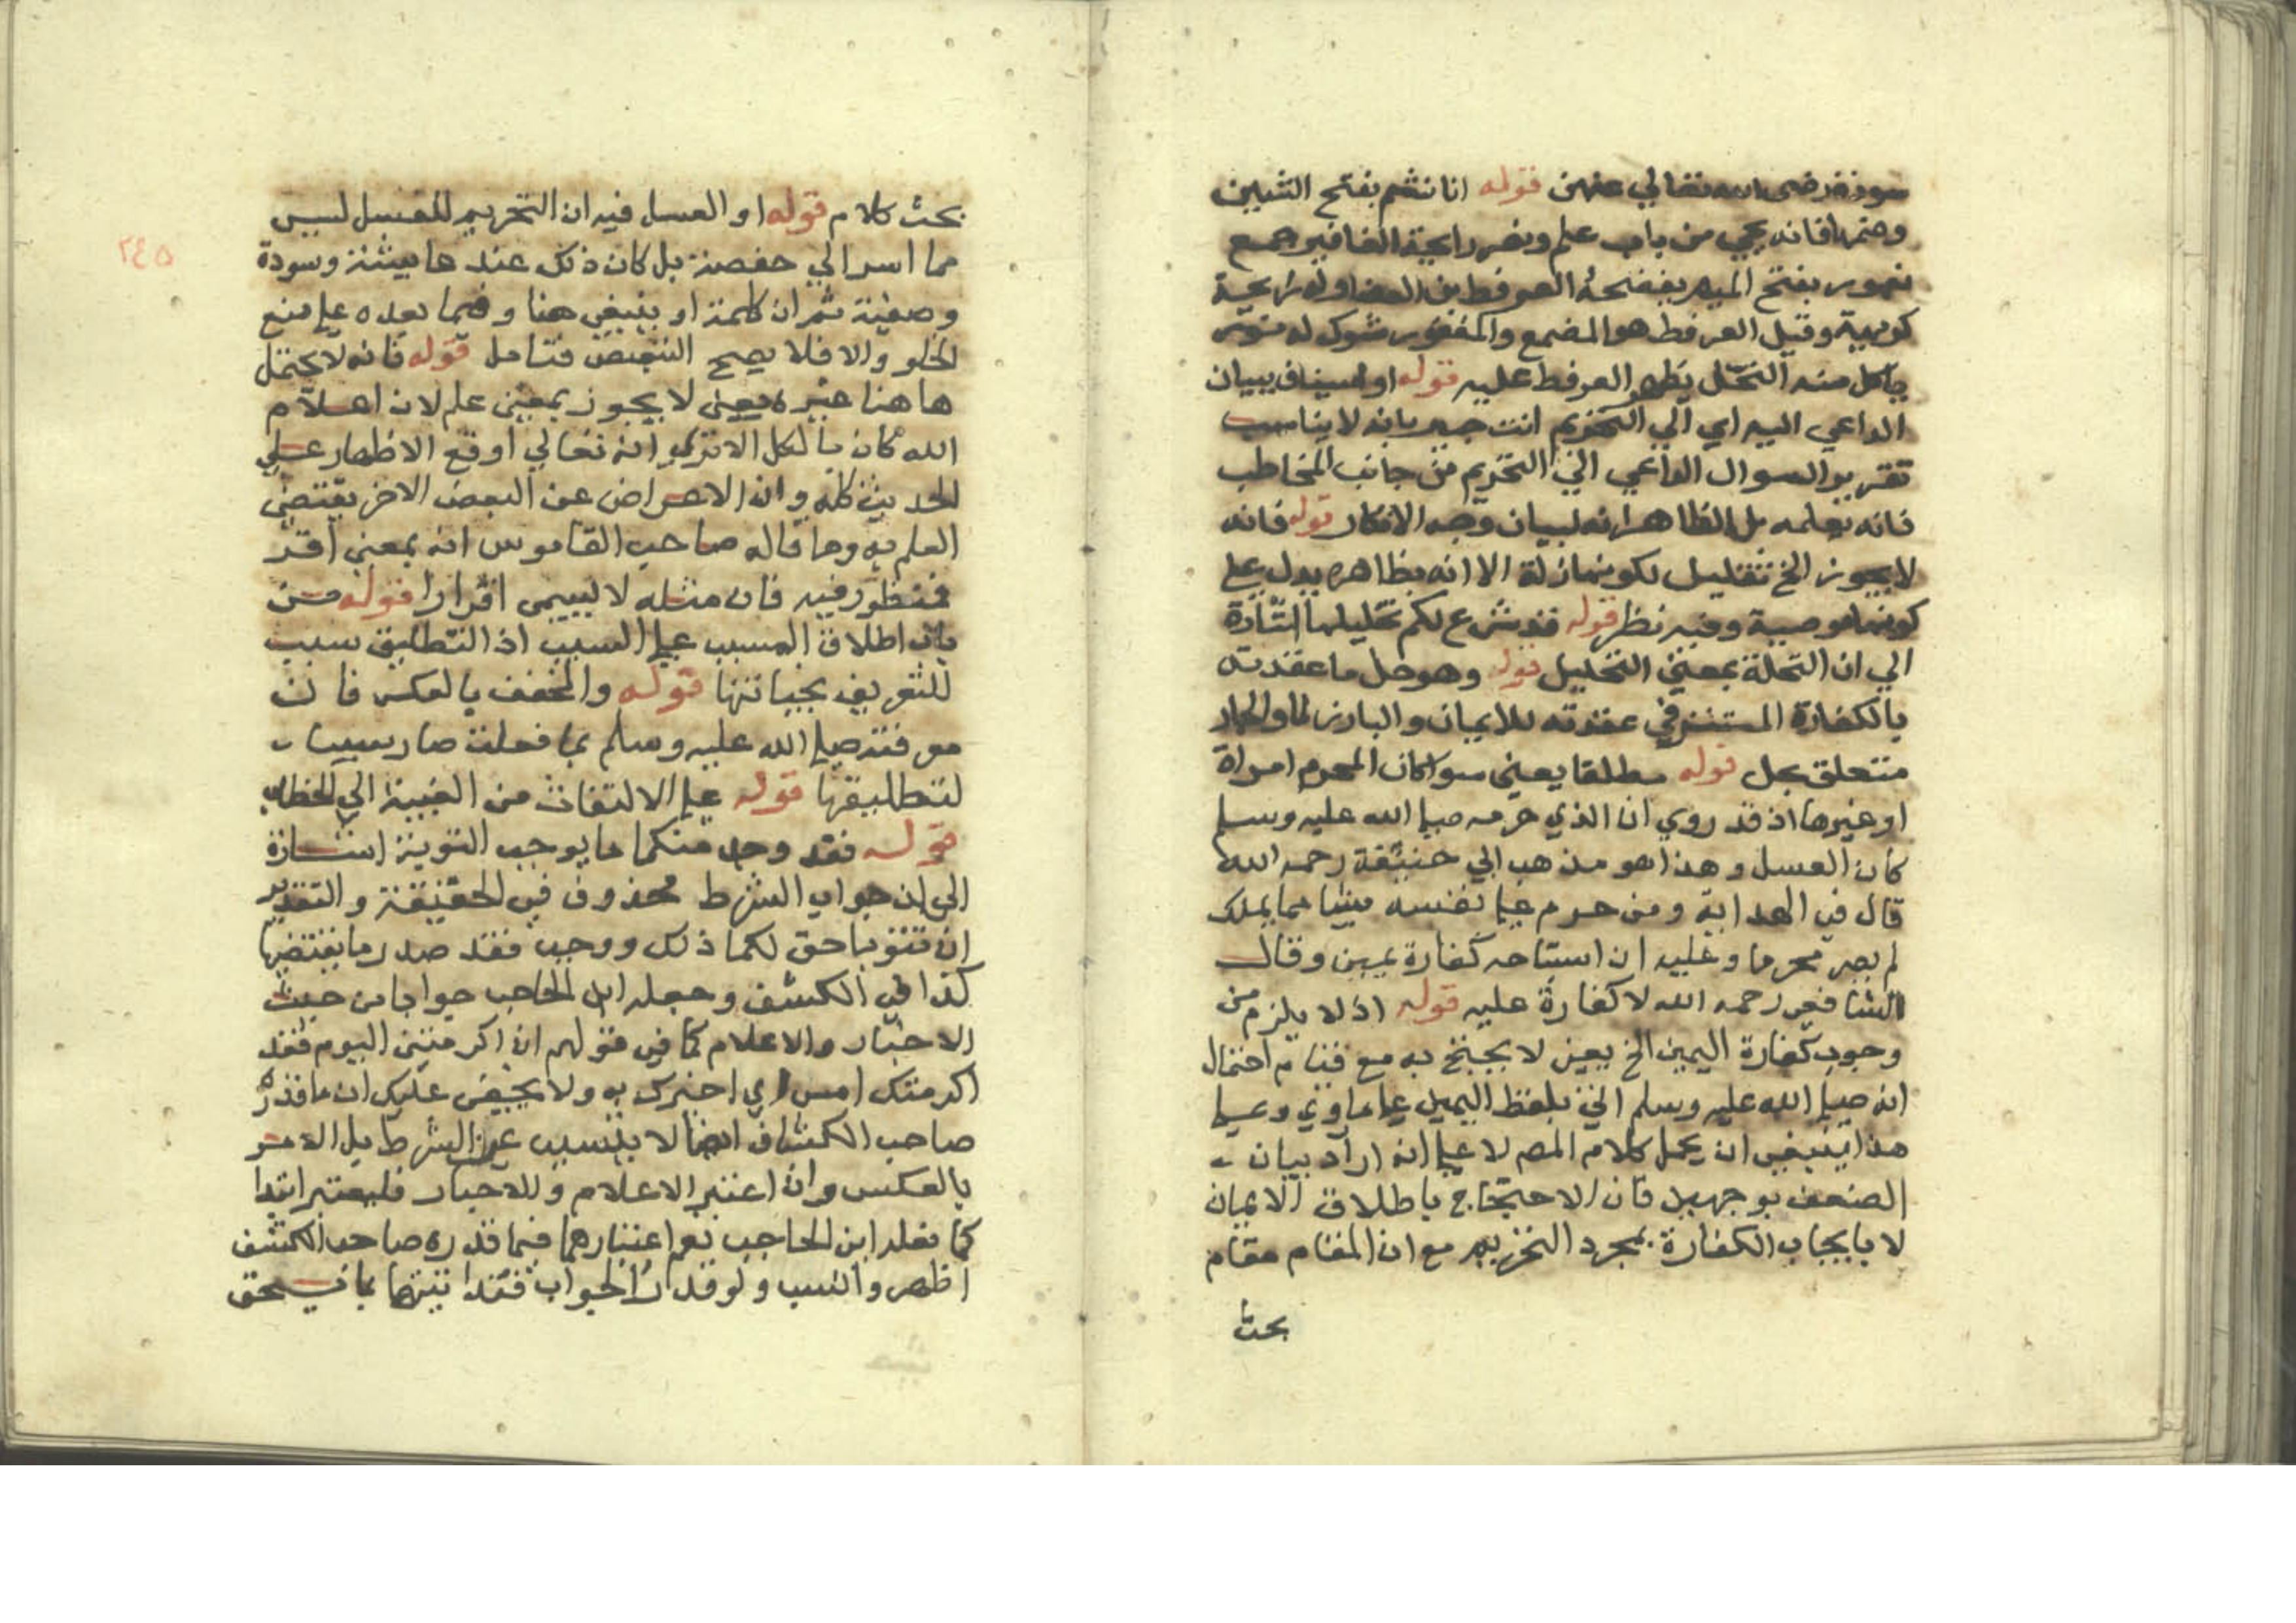 سودة رضى الله تعالي عنهن قوله انا نشم بفتح الشين
وضمها فانه يجي من باب علم ونصر رايحة المغافير جمع
مغفور بفتح الميم العرفط من العضاه وله رايحة
كريهة وقيل العرفط هو المضمع والمغفور شوك له
ياكل منه النحل يظهر العرفط عليه قوله او استيناف ببيان
الداعي اليه اي الي التحريم انت خبير بانه لا يناسب
تقرير السوال الداعي الي التحريم من جانب المخاطب
فانه يعلمه بل الظاهر انه لبيان وجه الانكار قوله فانه
لا يجوز الخ تعليل لكونها زلة الا انه بظاهره يدل علي
كونها معصية وفيه نظر قوله قد شرع لكم تحليلها اشارة
الي ان التحلة بمعني التحليل قوله وهو حل ما عقدته
بالكفارة المستتر في عقدته للايمان والبارز لما والجار
متعلق بحل قوله مطلقا يعني سوا كان المحرم امراة
او غيرها اذ قد روي ان الذي حرمه صلي الله عليه وسلم
كان العسل وهذا هو مذهب ابي حنيفة رحمه الله
قال في الهداية ومن حرم علي نفسه شيئا مما يملك
لم يصر محرما وعليه ان استباحه كفارة يمين وقال
الشافعي رحمه الله لا كفارة عليه قوله اذ لا يلزم من
وجوب كفارة اليمين الخ يعني لا يحتج به مع قيام احتمال
انه صلي الله عليه وسلم اتي بلفظ اليمين علي ما روي وعلي
هذا ينبغي ان يحمل كلام المص لا علي انه اراد بيان
الضعف بوجهين فان الاحتجاج باطلاق الايمان
لا بايجاب الكفارة بمجرد التحريم مع ان المقام مقام
بحث
بحث كلام قوله او العسل فيه ان التحريم للعسل ليس
مما اسر الي حفصة بل كان ذلك عند عايشة وسودة
وصفية ثم ان كلمة او ينبغي هنا وفيما بعده علي منع
الخلو والا فلا يصح التبعيض فتامل قوله فانه لا يحتمل
هاهنا غيره يعني لا يجوز بمعني علم لان اعلام
الله كان بالكل الا تري انه تعالي اوقع الاظهار علي
الحديث كله وان الاعراض عن البعض الاخر يقتضي
العلم به وما قاله صاحب القاموس انه بمعني اقر
فمنظور فيه فان مثله لا يسمى اقرارا قوله من
باب اطلاق المسبب علي السبب اذ التطليق سبب
للتعريف بجنايتها قوله والمخفف بالعكس فان
معرفته صلي الله عليه وسلم بما فعلت صار سببا
لتطليقها قوله علي الالتفات من الغيبة الي الخطاب
قوله فقد وجد منكما ما يوجب التوبة اشارة
الى ان جواب الشرط محذوف في الحقيقة والتقدير
ان تتوبا حق لكما ذلك ووجب فقد صدر ما يقتضيها
كذا في الكشف وجعله ابن الحاجب جوابا من حيث
الاخبار والاعلام كما في قولهم ان اكرمتني اليوم فقد
اكرمتك امس اي اخبرك به ولا يخفى عليك ان ما قدره
صاحب الكشاف ايضا لا يتسبب عن الشرط بل الامر
بالعكس وان اعتبر الاعلام وللاخبار فليعتبر ابتدا
كما نقله ابن الحاجب نعم اعتبارهما فيما قدره صاحب الكشف
اظهر وانسب ولو قدر الجواب فقد اتيتما بما يحق
٢٤٥